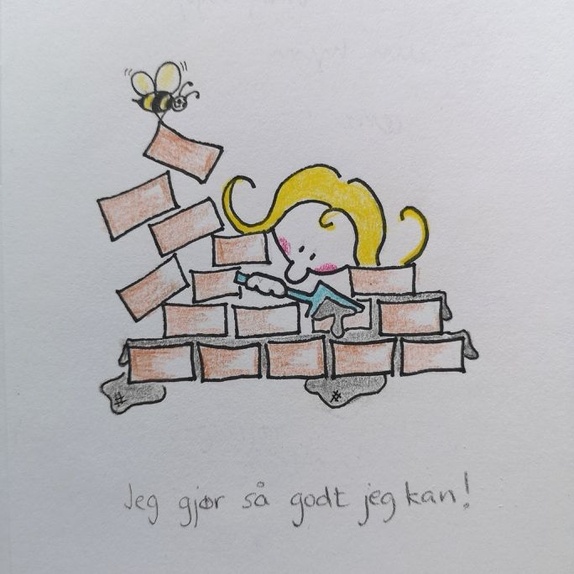 Jeg gjør så godt jeg kan!